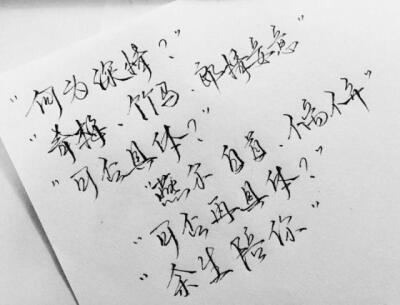 "何为深情?"
"青梅、竹马、郎情妾意"
"可否具体?"
燕尔 白首、"
"可否再具体?"
"余生陪你"